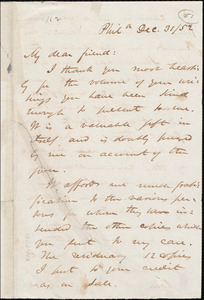 Phila Dec. 31/52
My dear friend:
I thank you most heartily
for the volume of your wri-
tings you have been kind
enough to present to me.
It is a valuable gift in
itself and is doubly prized
by me on account of the
giver.
It affords me much grati-
fication to the various per-
sons of whom they were in-
tended the other copies which
you put to my care.
The residuary 12 copies
I put to your credit
as on sale.